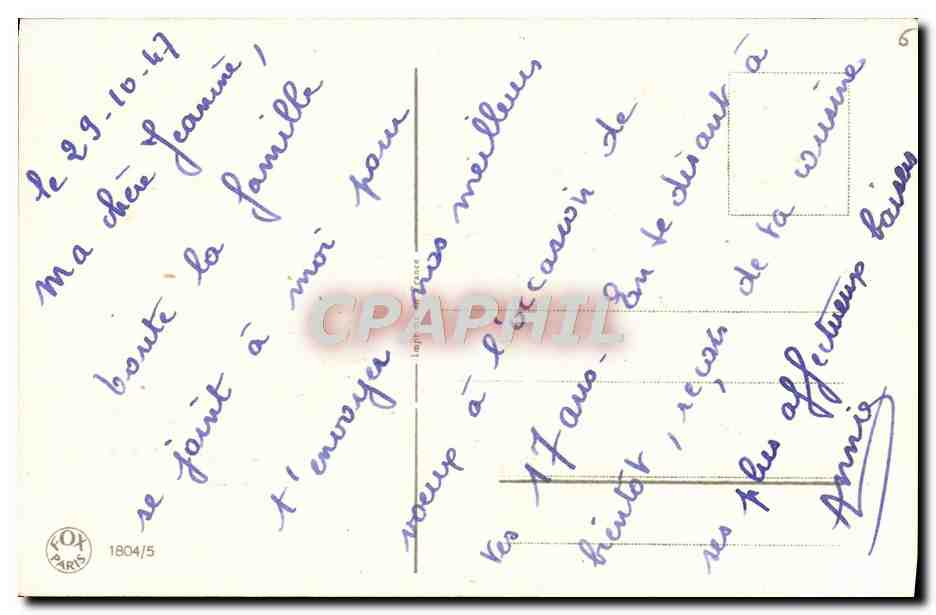 le 29-10-47
Ma chère Jeanine,
toute la famille
se joint à moi pour
t'envoyer nos meilleurs
voeux à l'occasion de
tes 17 ans. En te disant à
bientôt, reçois de ta cousine
ses plus affectueux baisers
Annie
6
Imprimé en France
CPAPHIL
FOX
PARIS
1804/5